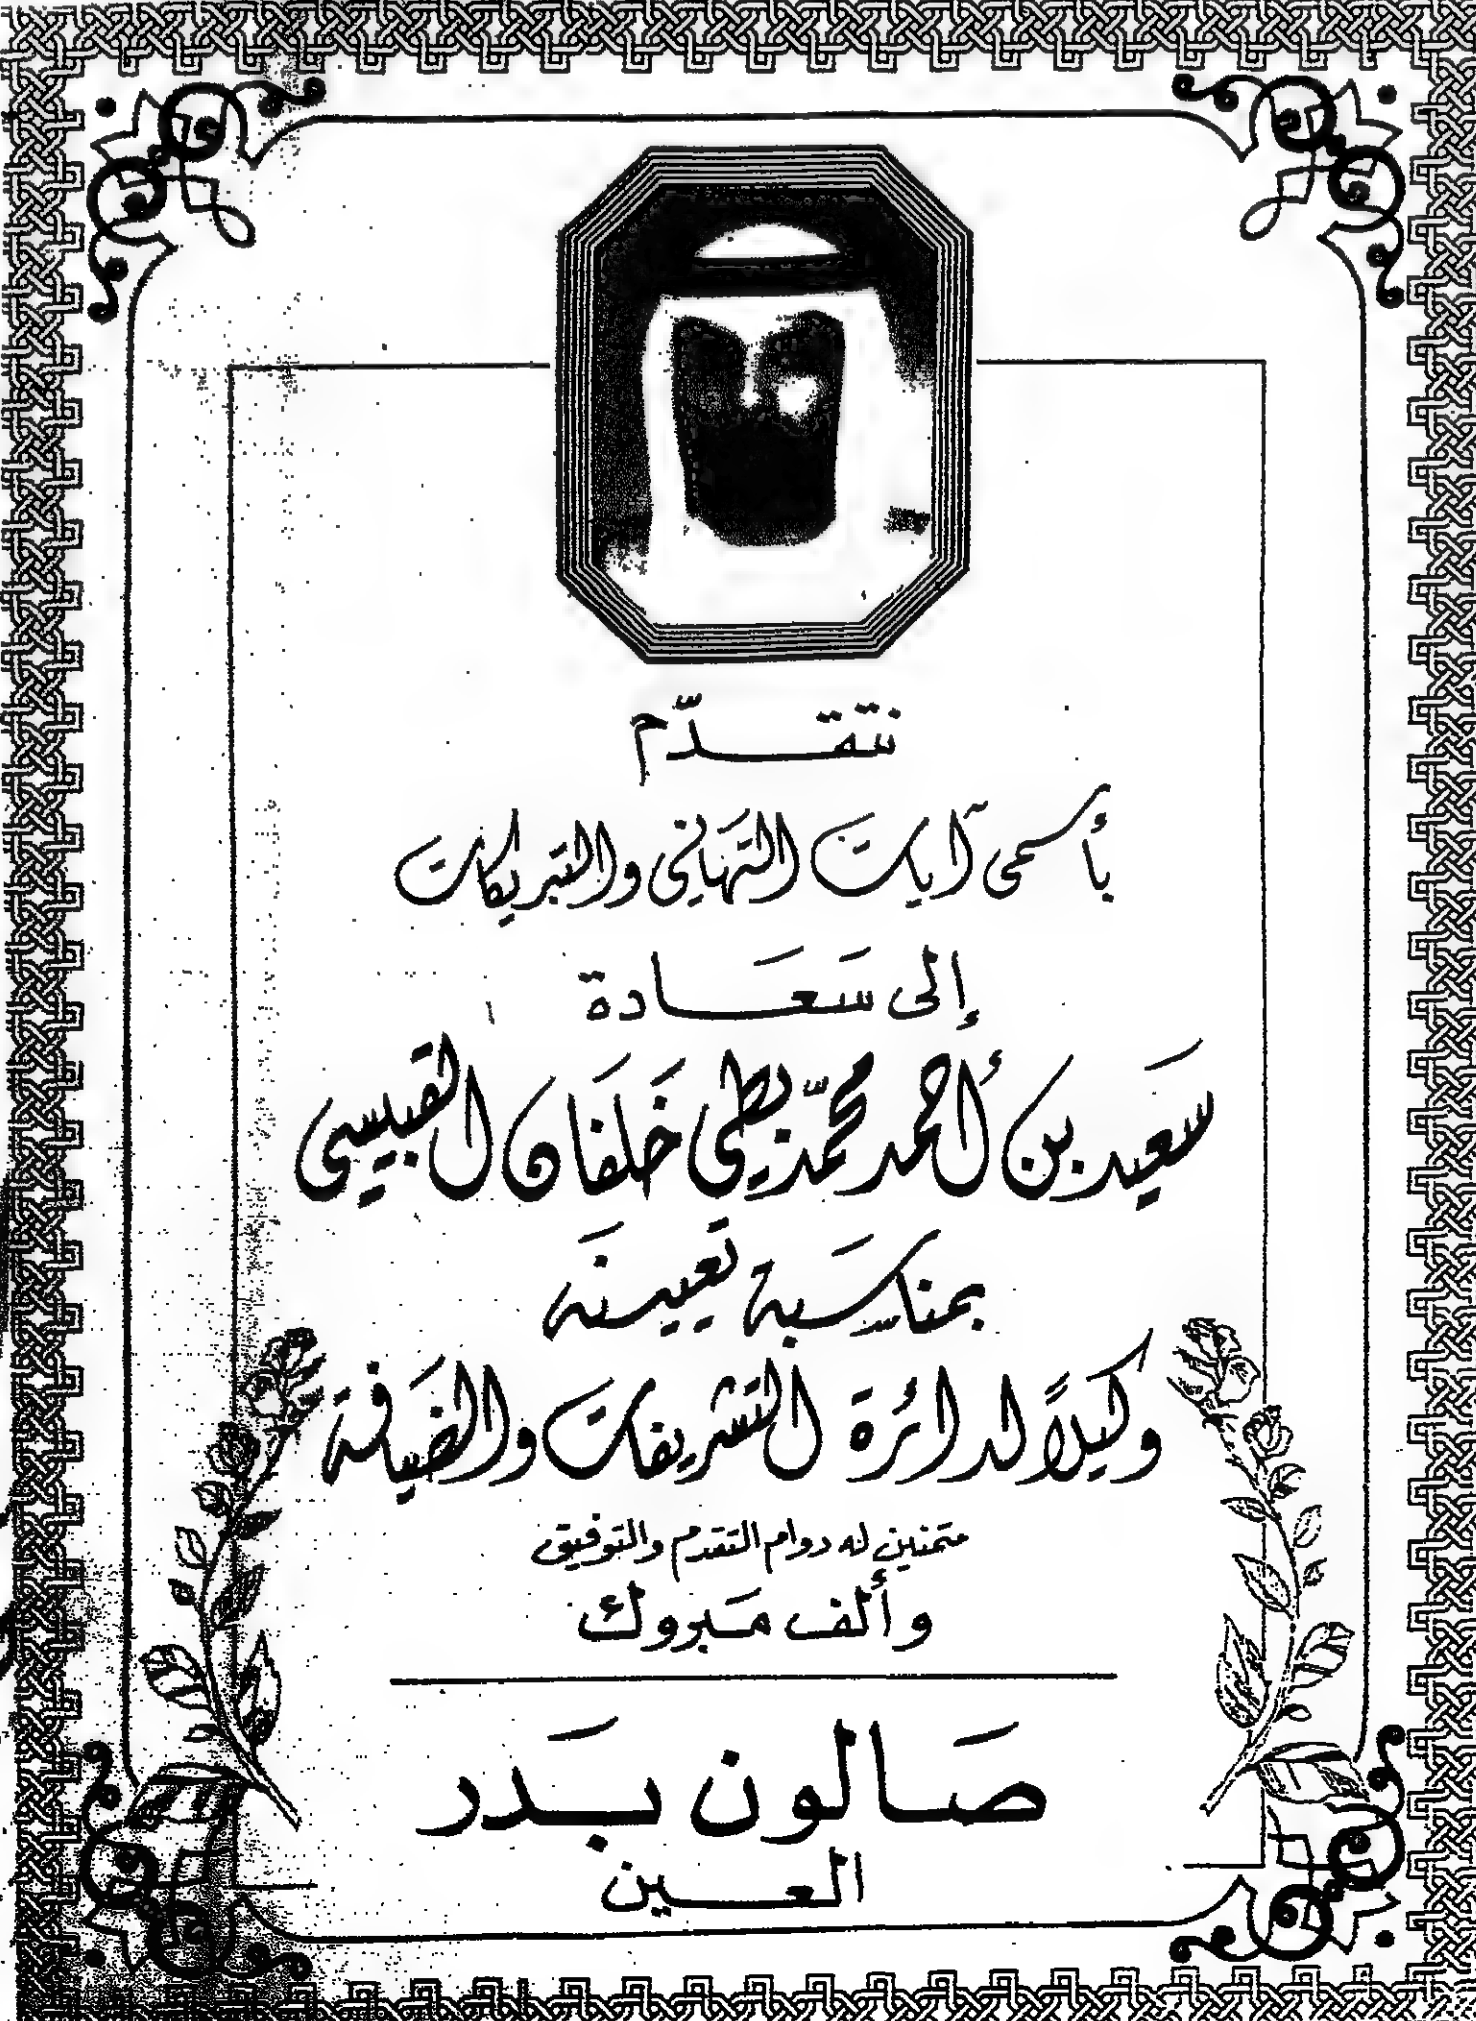 نتقدّم
بأسمى آيات التهاني والتبريكات
إلى سَعَادة
سَعيد بن أحمد محمّد بطي خَلفَان القبيسي
بمناسَبة تعيينَه
وكيلاً لدائرة التشريفات والضيَافة
متمنين له دوام التقدم والتوفيق
وألف مَبروك
صَالون بَدر
العين